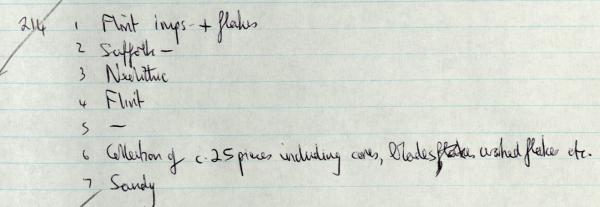 214 1 Flint imps - + flakes
2 Suffolk -
3 Neolithic
4 Flint
5 -
6 Collection of c. 25 pieces including cores, blades, flakes etc.
7 Sandy